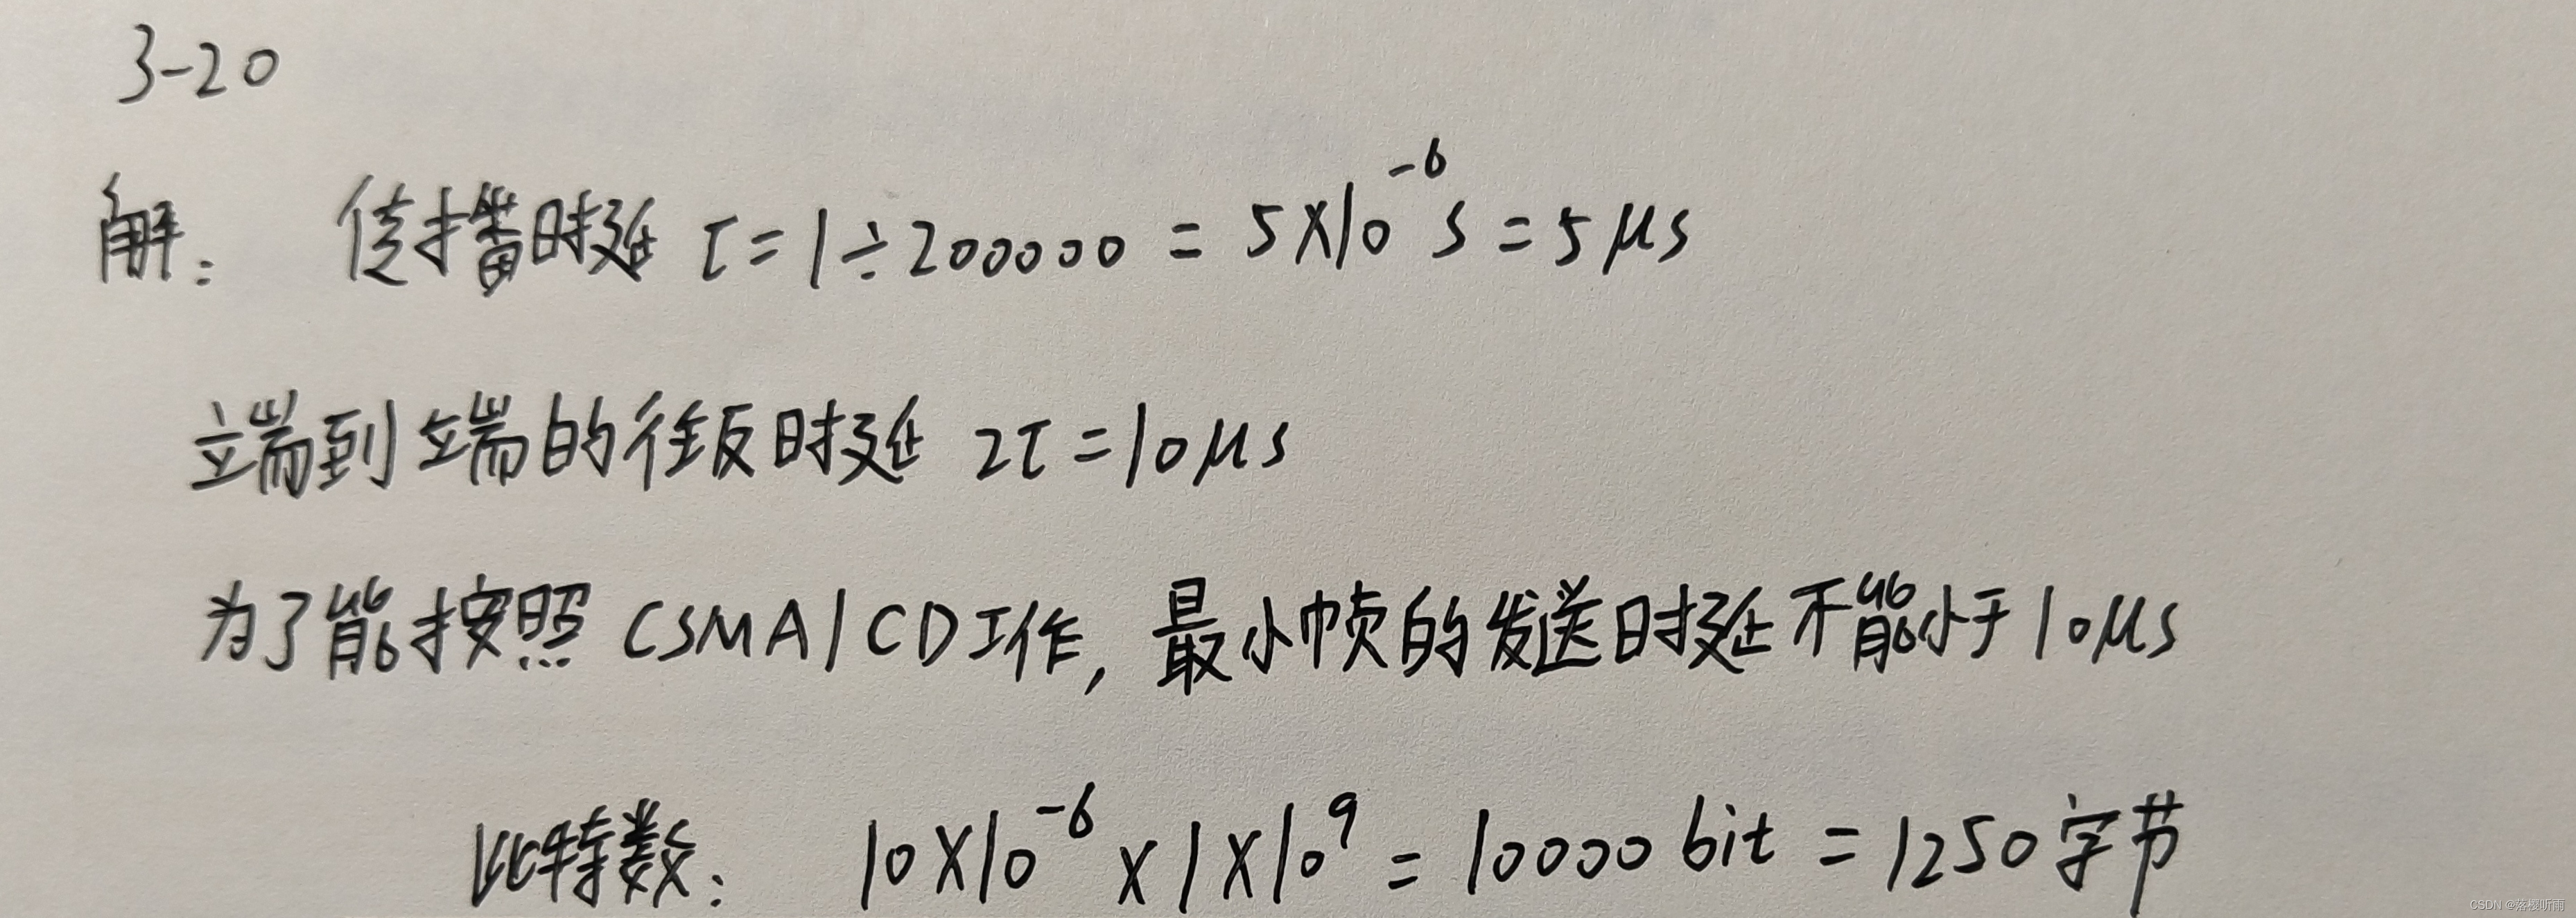 3-20
解: 传播时延 τ=1÷200000=5×10⁻⁶s=5μs
端到端的往返时延 2τ=10μs
为了能按照 CSMA/CD工作, 最小帧的发送时延不能小于10μs
比特数: 10×10⁻⁶×1×10⁹=10000bit=1250字节
CSDN @落樱听雨